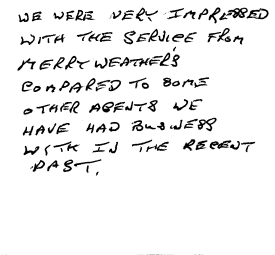 WE WERE VERY IMPRESSED
WITH THE SERVICE FROM
MERRYWEATHER'S
COMPARED TO SOME
OTHER AGENTS WE
HAVE HAD BUSINESS
WITH IN THE RECENT
PAST.